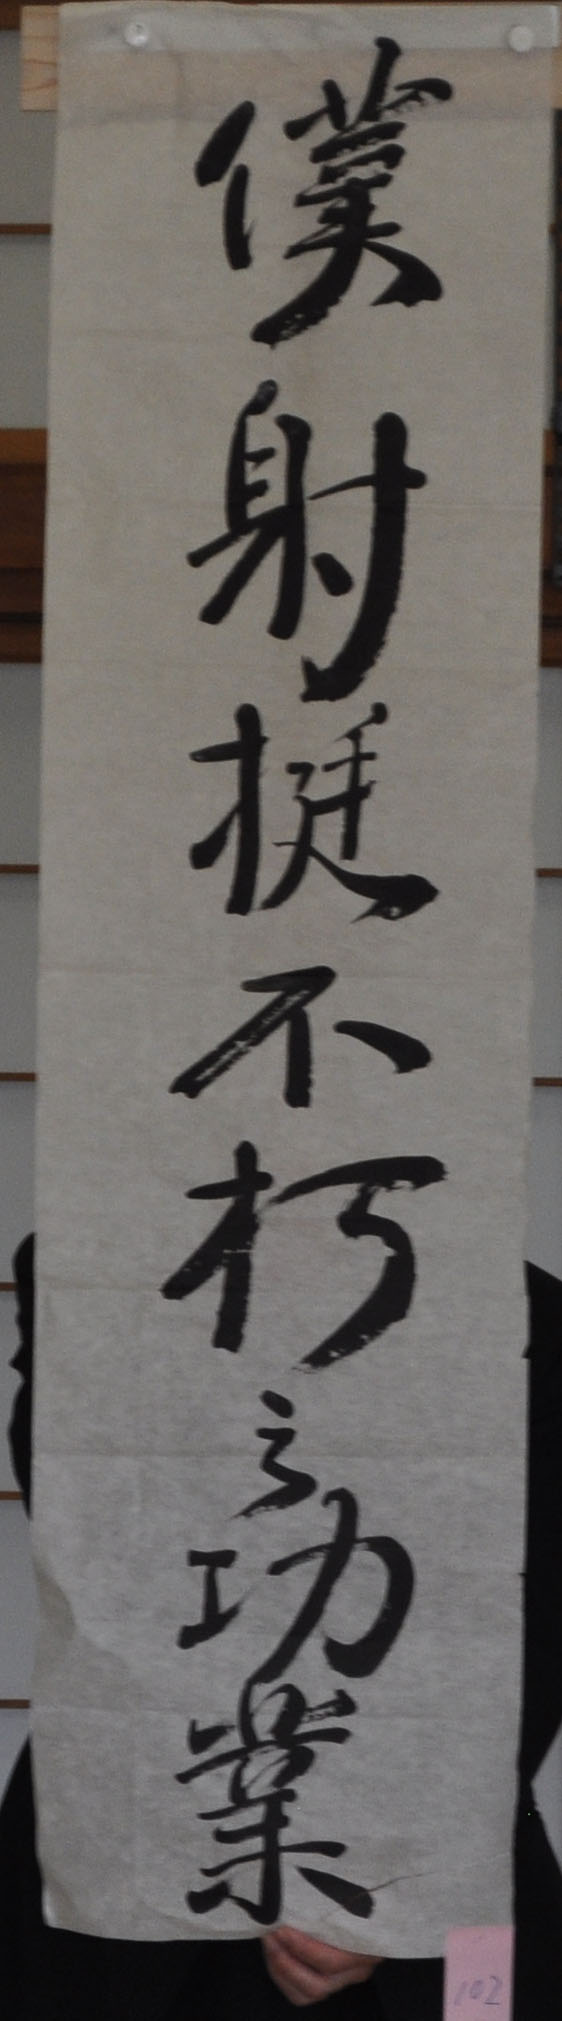 僕射挺不朽之功業
102